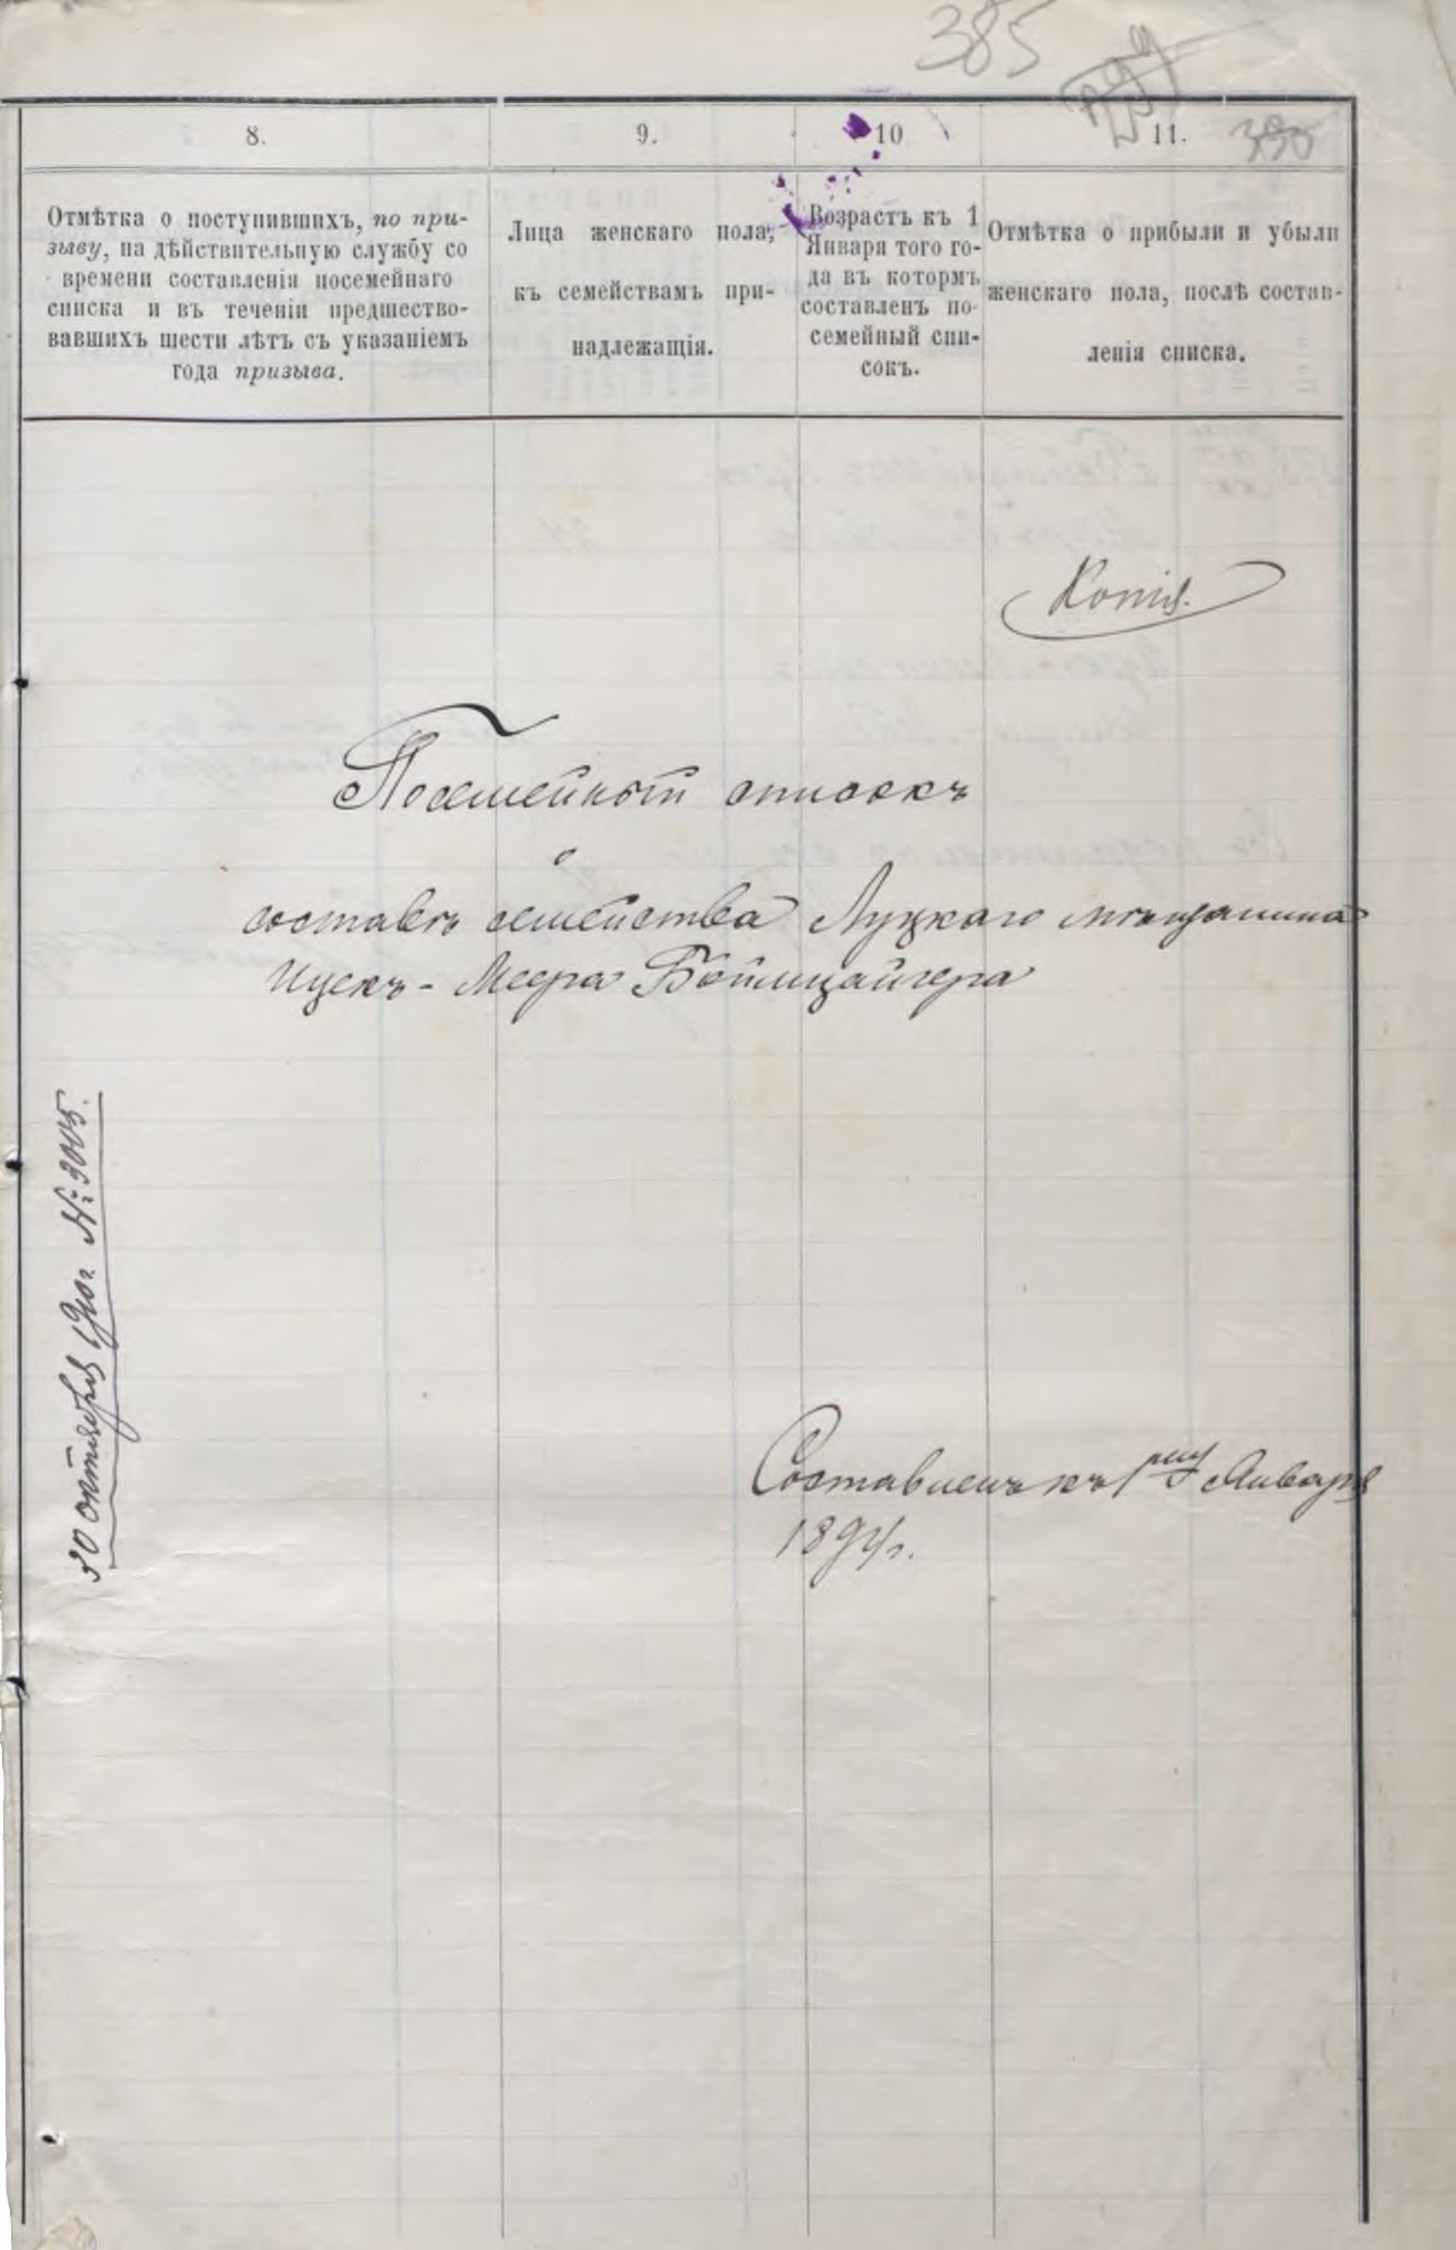 385
390
8.
9.
10
11.
Отмѣтка о поступившихъ, по при-
зыву, на дѣйствительную службу со
времени составленія посемейнаго
списка и въ теченіи предшество-
вавшихъ шести лѣтъ съ указаніемъ
года призыва.
Лица женскаго пола,
къ семействамъ при-
надлежащія.
Возрастъ къ 1
Января того го-
да въ котормъ
составленъ по-
семейный спи-
сокъ.
Отмѣтка о прибыли и убыли
женскаго пола, послѣ состав-
ленія списка.
Копія.
Посемейный списокъ
о
составѣ семейства Луцкаго мѣщанина
Ицекъ-Меера Ботмцайгера
30 октября 1910г. № 3005.
Составленъ къ 1 Января
1894г.